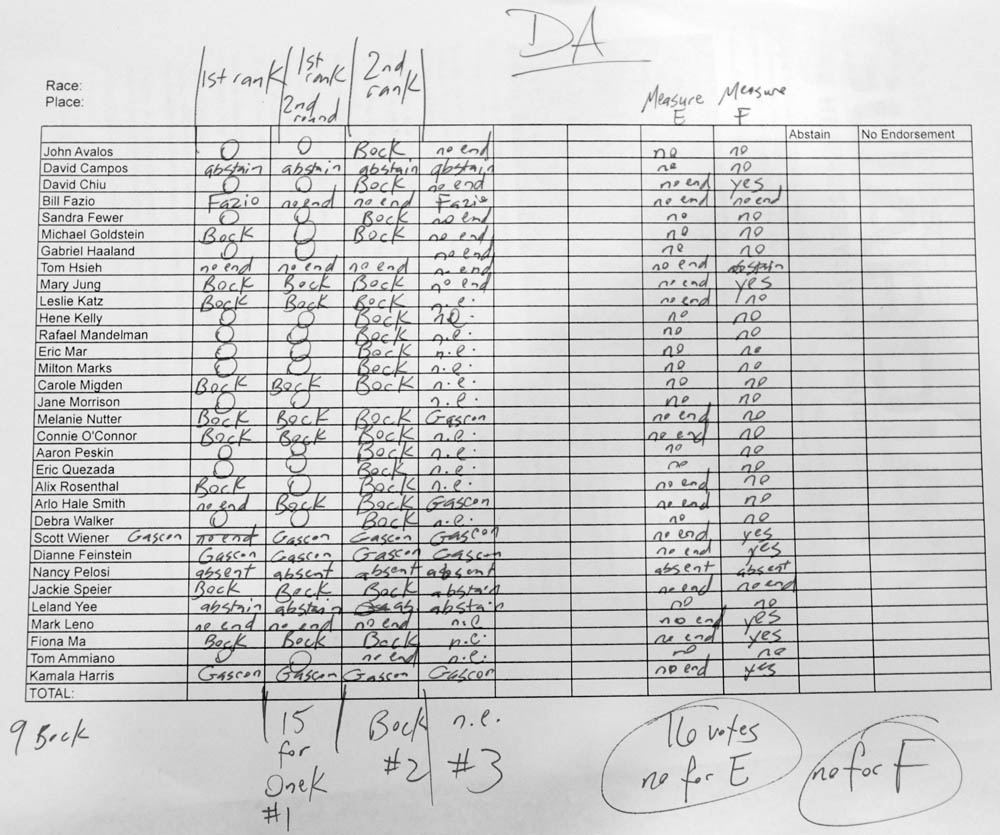 DA
1st rank 1st rank 2nd round 2nd rank
Race:
Place:
Measure E Measure F
Abstain No Endorsement
John Avalos O O Bock no end no no
David Campos abstain abstain abstain abstain no no
David Chiu O O Bock no end no end yes
Bill Fazio Fazio no end no end Fazio no end no end
Sandra Fewer O O Bock no end no no
Michael Goldstein Bock O Bock no end no no
Gabriel Haaland O O no end no no
Tom Hsieh no end no end no end no end no end abstain
Mary Jung Bock Bock Bock no end no end yes
Leslie Katz Bock Bock Bock n.e. no end no
Hene Kelly O O Bock n.e. no no
Rafael Mandelman O O Bock n.e. no no
Eric Mar O O Bock n.e. no no
Milton Marks O O Bock n.e. no no
Carole Migden Bock Bock Bock n.e. no no
Jane Morrison O O n.e. no no
Melanie Nutter Bock Bock Bock Gascon no end no
Connie O'Connor Bock Bock Bock n.e. no end no
Aaron Peskin O O Bock n.e. no no
Eric Quezada O O Bock n.e. no no
Alix Rosenthal Bock O Bock n.e. no end no
Arlo Hale Smith no end Bock Bock Gascon no end no
Debra Walker O O Bock n.e. no no
Scott Wiener Gascon no end Gascon Gascon Gascon no end yes
Dianne Feinstein Gascon Gascon Gascon Gascon no end yes
Nancy Pelosi absent absent absent absent absent absent
Jackie Speier Bock Bock Bock abstain no end no end
Leland Yee abstain abstain ab abstain no no
Mark Leno no end no end no end n.e no end yes
Fiona Ma Bock Bock Bock n.e. no end yes
Tom Ammiano O O no end n.e. no no
Kamala Harris Gascon Gascon Gascon Gascon no end yes
TOTAL:
9 Bock
15 for OneK #1
Bock #2
n.e. #3
16 votes
no for E
no for F